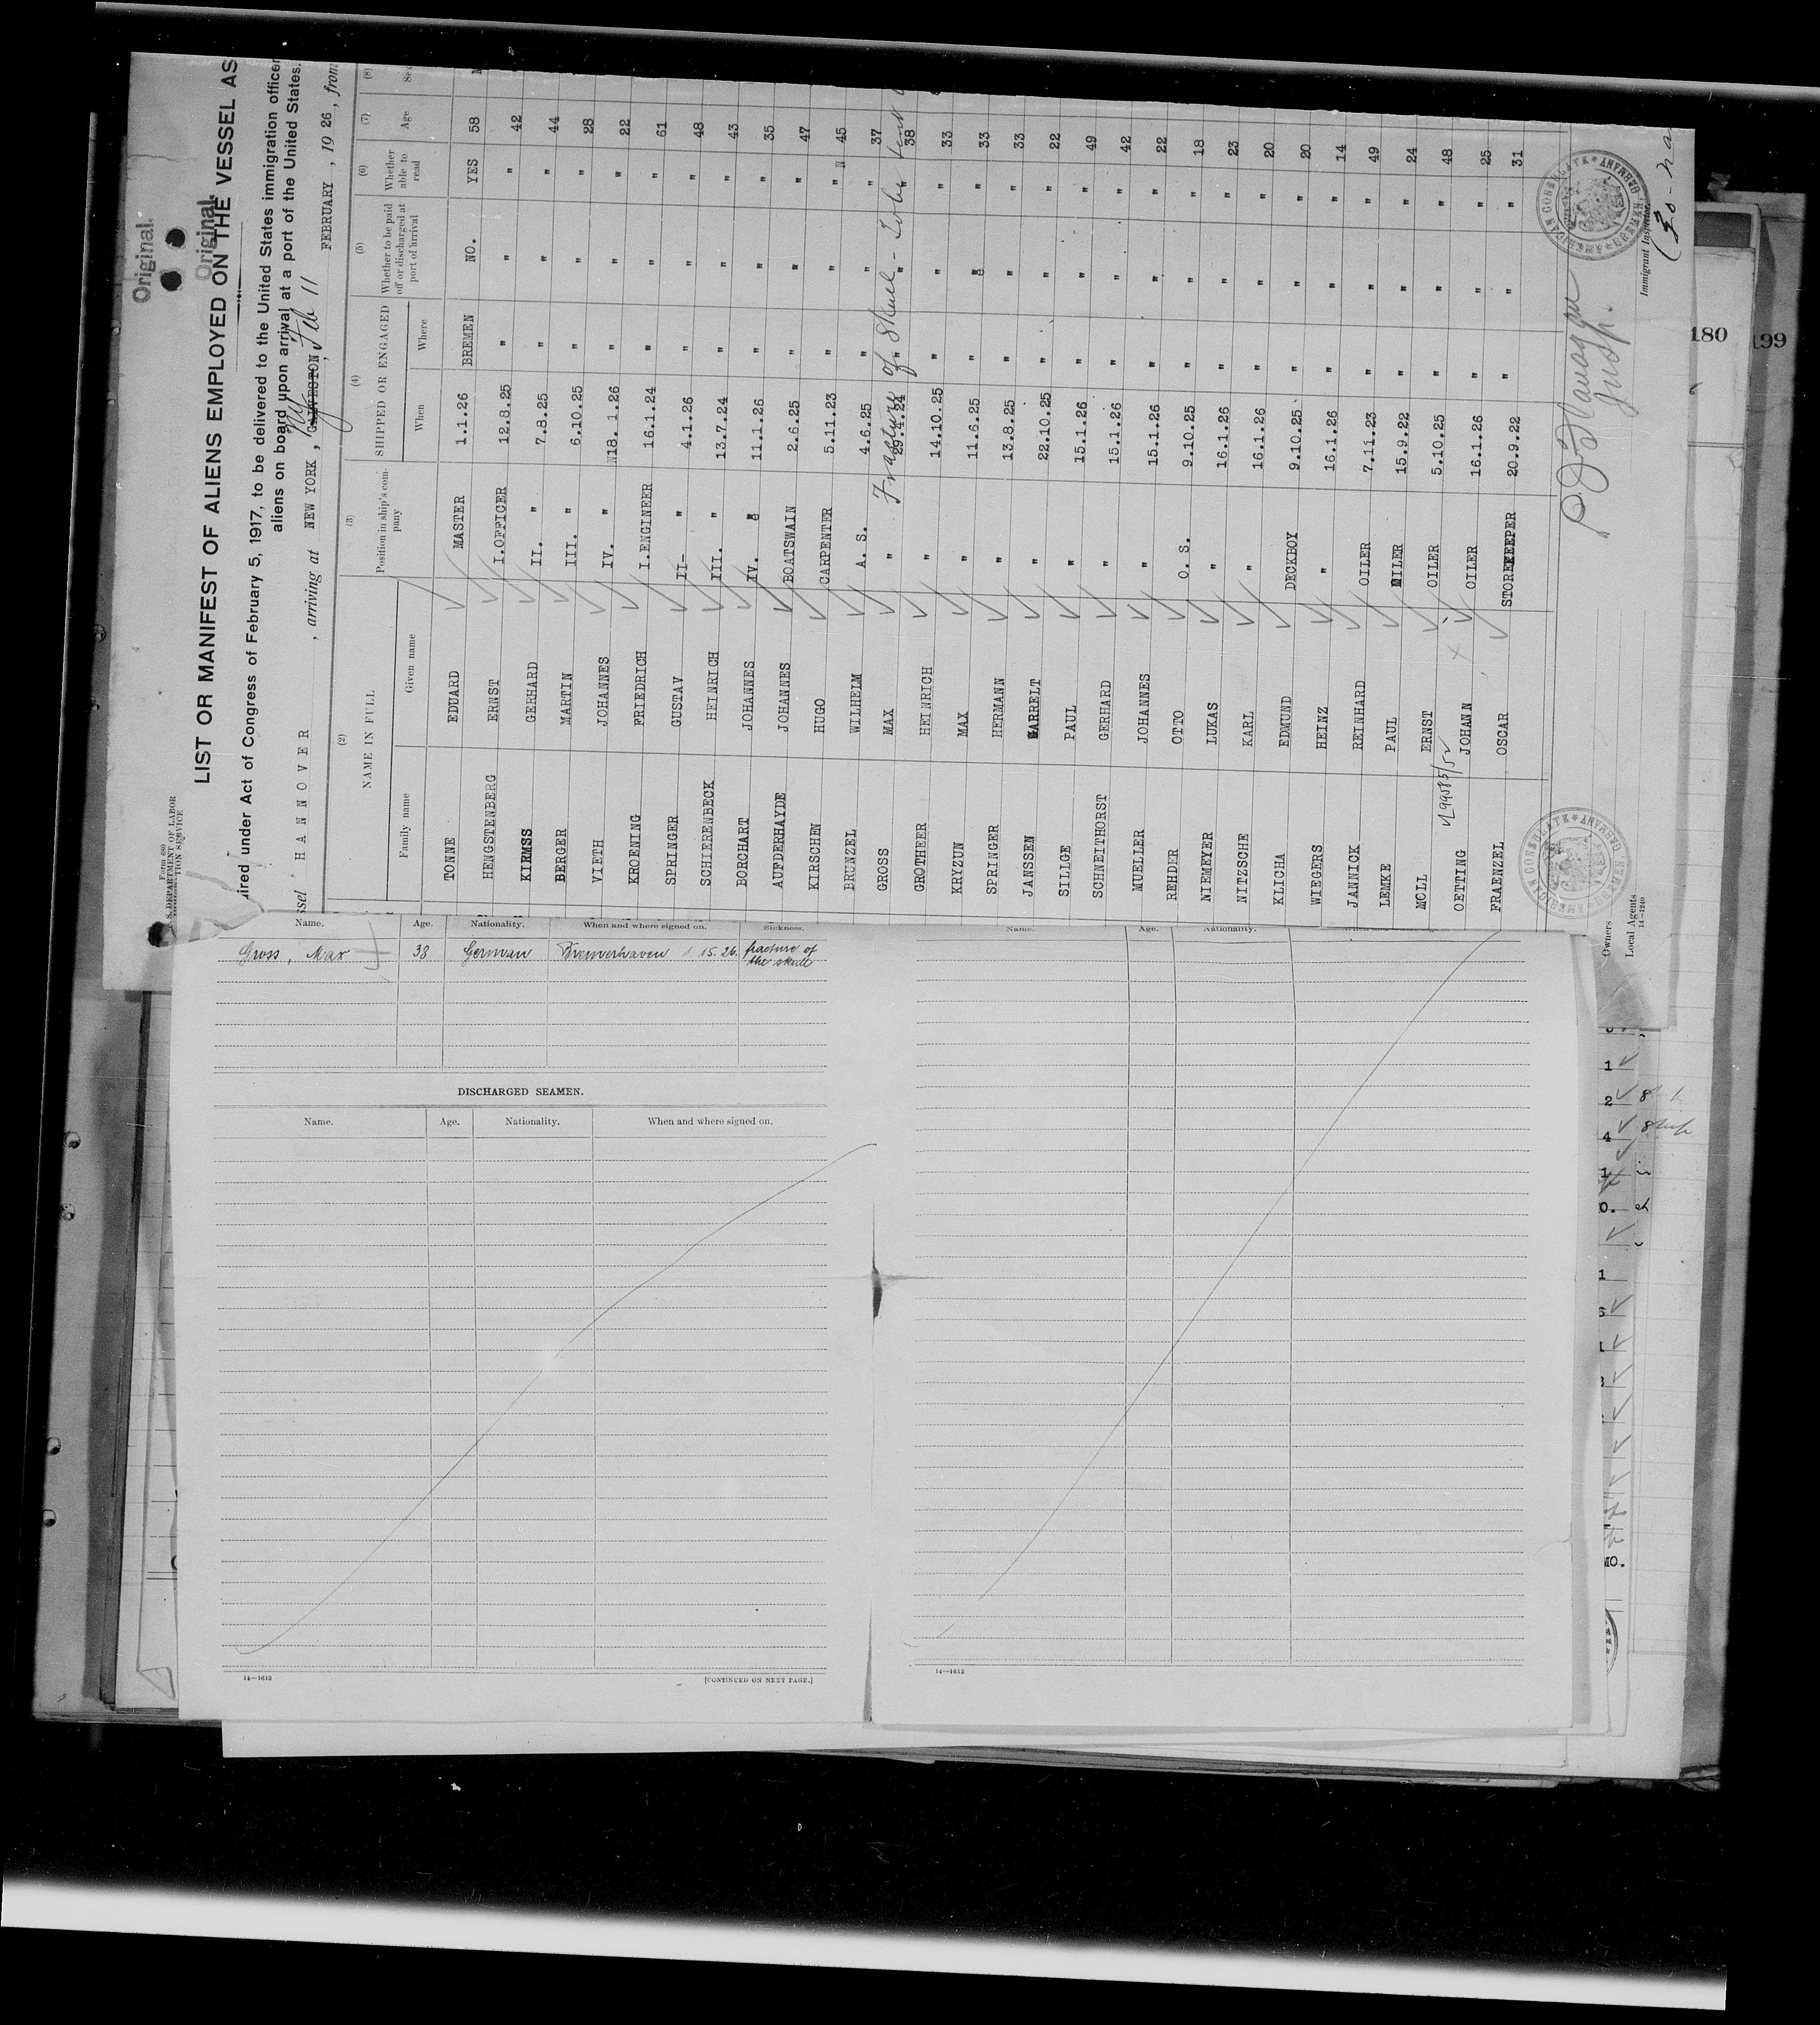 Original.
Original.
Form 680
U. S. DEPARTMENT OF LABOR
IMMIGRATION SERVICE
LIST OR MANIFEST OF ALIENS EMPLOYED ON THE VESSEL AS
ired under Act of Congress of February 5, 1917, to be delivered to the United States immigration officer
aliens on board upon arrival at a port of the United States.
ssel HANNOVER , arriving at NEW YORK, GALVESTON, NY Feb 11 FEBRUARY, 1926, from
(2) (3) (4) (5) (6) (7) (8)
NAME IN FULL Position in ship's company SHIPPED OR ENGAGED Whether to be paid off or discharged at port of arrival Whether able to read Age Sex
Family name Given name When Where
TONNE EDUARD MASTER 1.1.26 BREMEN NO. YES 58
HENGSTENBERG ERNST I.OFFICER 12.8.25 " " " 42
KIRMSS GERHARD II. " 7.8.25 " " " 44
BERGER MARTIN III. " 6.10.25 " " " 28
VIETH JOHANNES IV. " 18.1.26 " " " 22
KROENING FRIEDRICH I.ENGINEER 16.1.24 " " " 61
SPRINGER GUSTAV II- " 4.1.26 " " " 48
SCHIERENBECK HEINRICH III. " 13.7.24 " " " 43
BORCHART JOHANNES IV. " 11.1.26 " " " 35
AUFDERHAYDE JOHANNES BOATSWAIN 2.6.25 " " " 47
KIRSCHEN HUGO CARPENTER 5.11.23 " " " 45
BRUNZEL WILHELM A. S. 4.6.25 " " " 37
GROSS MAX " 29.4.24 " " " 38
Fracture of Skull -
GROTHEER HEINRICH " 14.10.25 " " " 33
KRYZUN MAX " 11.6.25 " " " 33
SPRINGER HERMANN " 13.8.25 " " " 33
JANSSEN GARRELT " 22.10.25 " " " 22
SILLGE PAUL " 15.1.26 " " " 49
SCHNEITHORST GERHARD " 15.1.26 " " " 42
MUELLER JOHANNES " 15.1.26 " " " 22
REHDER OTTO O. S. 9.10.25 " " " 18
NIEMEYER LUKAS " 16.1.26 " " " 23
NITZSCHE KARL " 16.1.26 " " " 20
KLICHA EDMUND DECKBOY 9.10.25 " " " 20
WIEGERS HEINZ " 16.1.26 " " " 14
JANNICK REINHARD OILER 7.11.23 " " " 49
LEMKE PAUL OILER 15.9.22 " " " 24
MOLL ERNST OILER 5.10.25 " " " 48
OETTING JOHANN OILER 16.1.26 " " " 25
FRAENZEL OSCAR STOREKEEPER 20.9.22 " " " 31
AMERICAN CONSULATE BREMEN GERMANY
AMERICAN CONSULATE BREMEN GERMANY
Insp.
Immigrant Inspector.
Owners
Local Agents
14-1240
180
199
Name. Age. Nationality. When and where signed on. Sickness.
Gross, Max 38 German Bremerhaven 1 15. 26. fracture of
the skull
DISCHARGED SEAMEN.
Name. Age. Nationality. When and where signed on.
14—1613
[CONTINUED ON NEXT PAGE.]
Name. Age. Nationality.
14—1613
1
2
4
1
0.
1
NO.